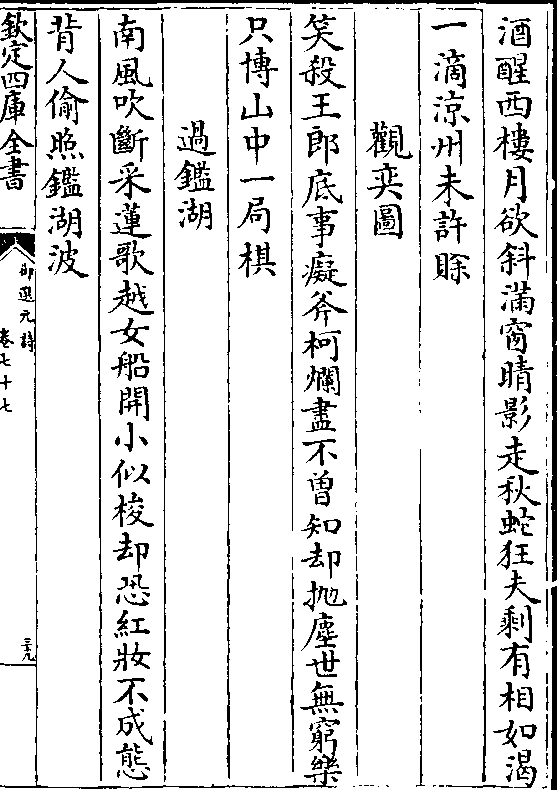 酒醒西樓月欲斜滿窗晴影走秋蛇狂夫剩有相如渴
一滴涼州未許賖
觀奕圖
笑殺王郎底事癡斧柯爛盡不曽知却抛塵世無窮樂
只博山中一局棋
過鑑湖
南風吹斷采蓮歌越女船開小似梭却恐紅妝不成態
背人偷照鑑湖波
欽定四庫全書
御選元詩
卷七十七
三十九